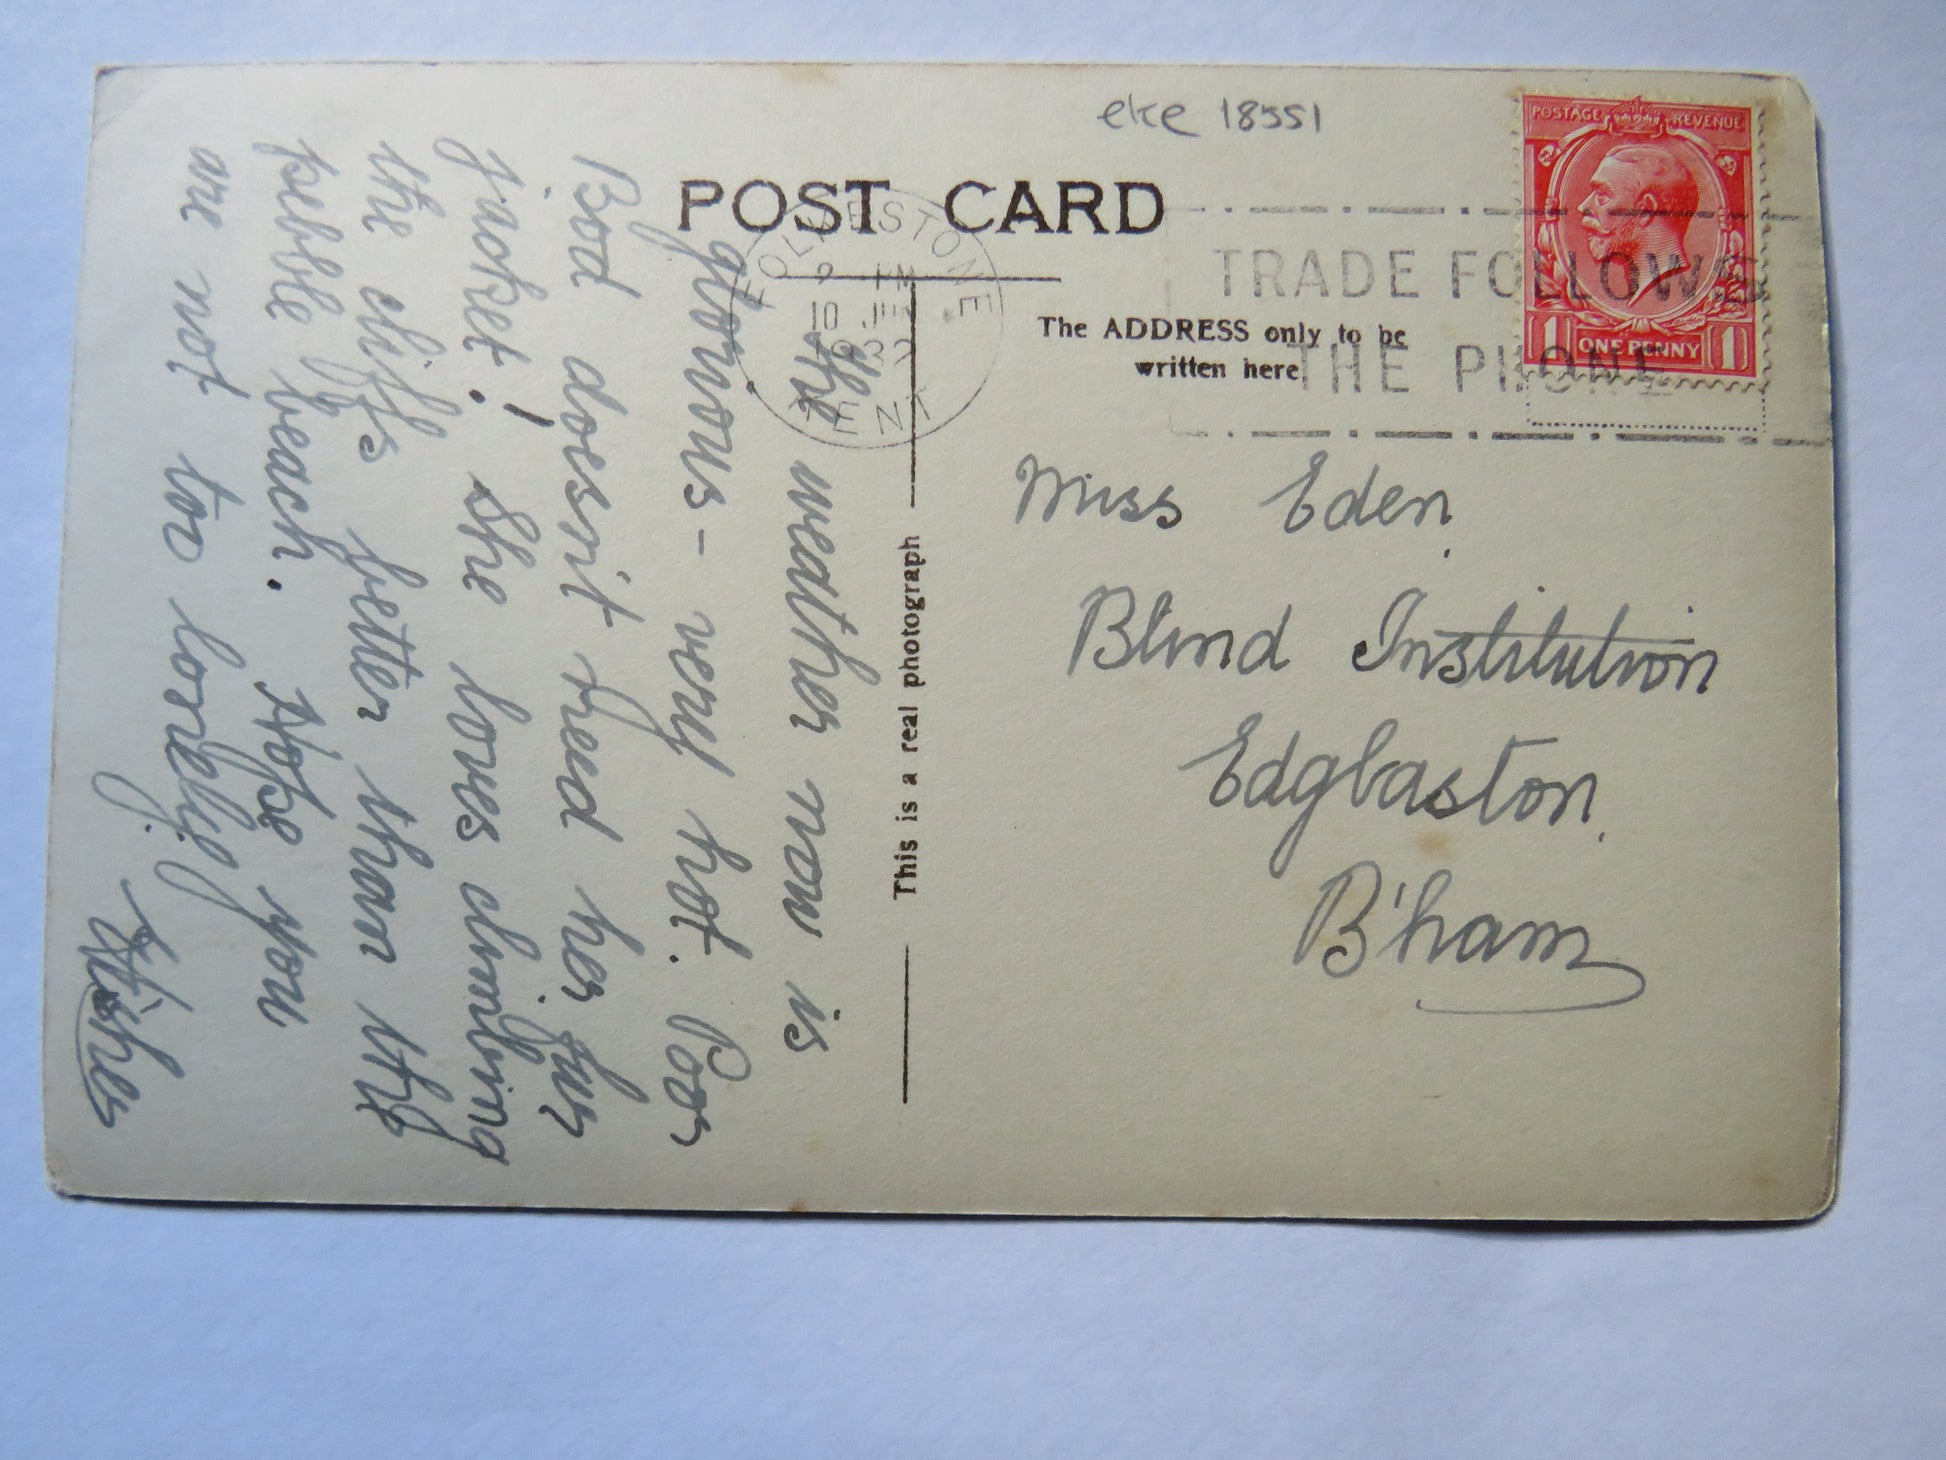 eke 18551
POST CARD
POSTAGE REVENUE
1 ONE PENNY 1
TRADE FOLLOWS
THE PHONE
FOLKESTONE
PM
10
KENT
The ADDRESS only to be
written here
This is a real photograph
Miss Eden.
Blind Institution
Edgbaston.
B'ham
The weather now is
glorious - very hot. Poor
Bod doesn't need her fur
jacket! She loves climbing
the cliffs better than the
pebble beach. Hope you
are not too lonely.